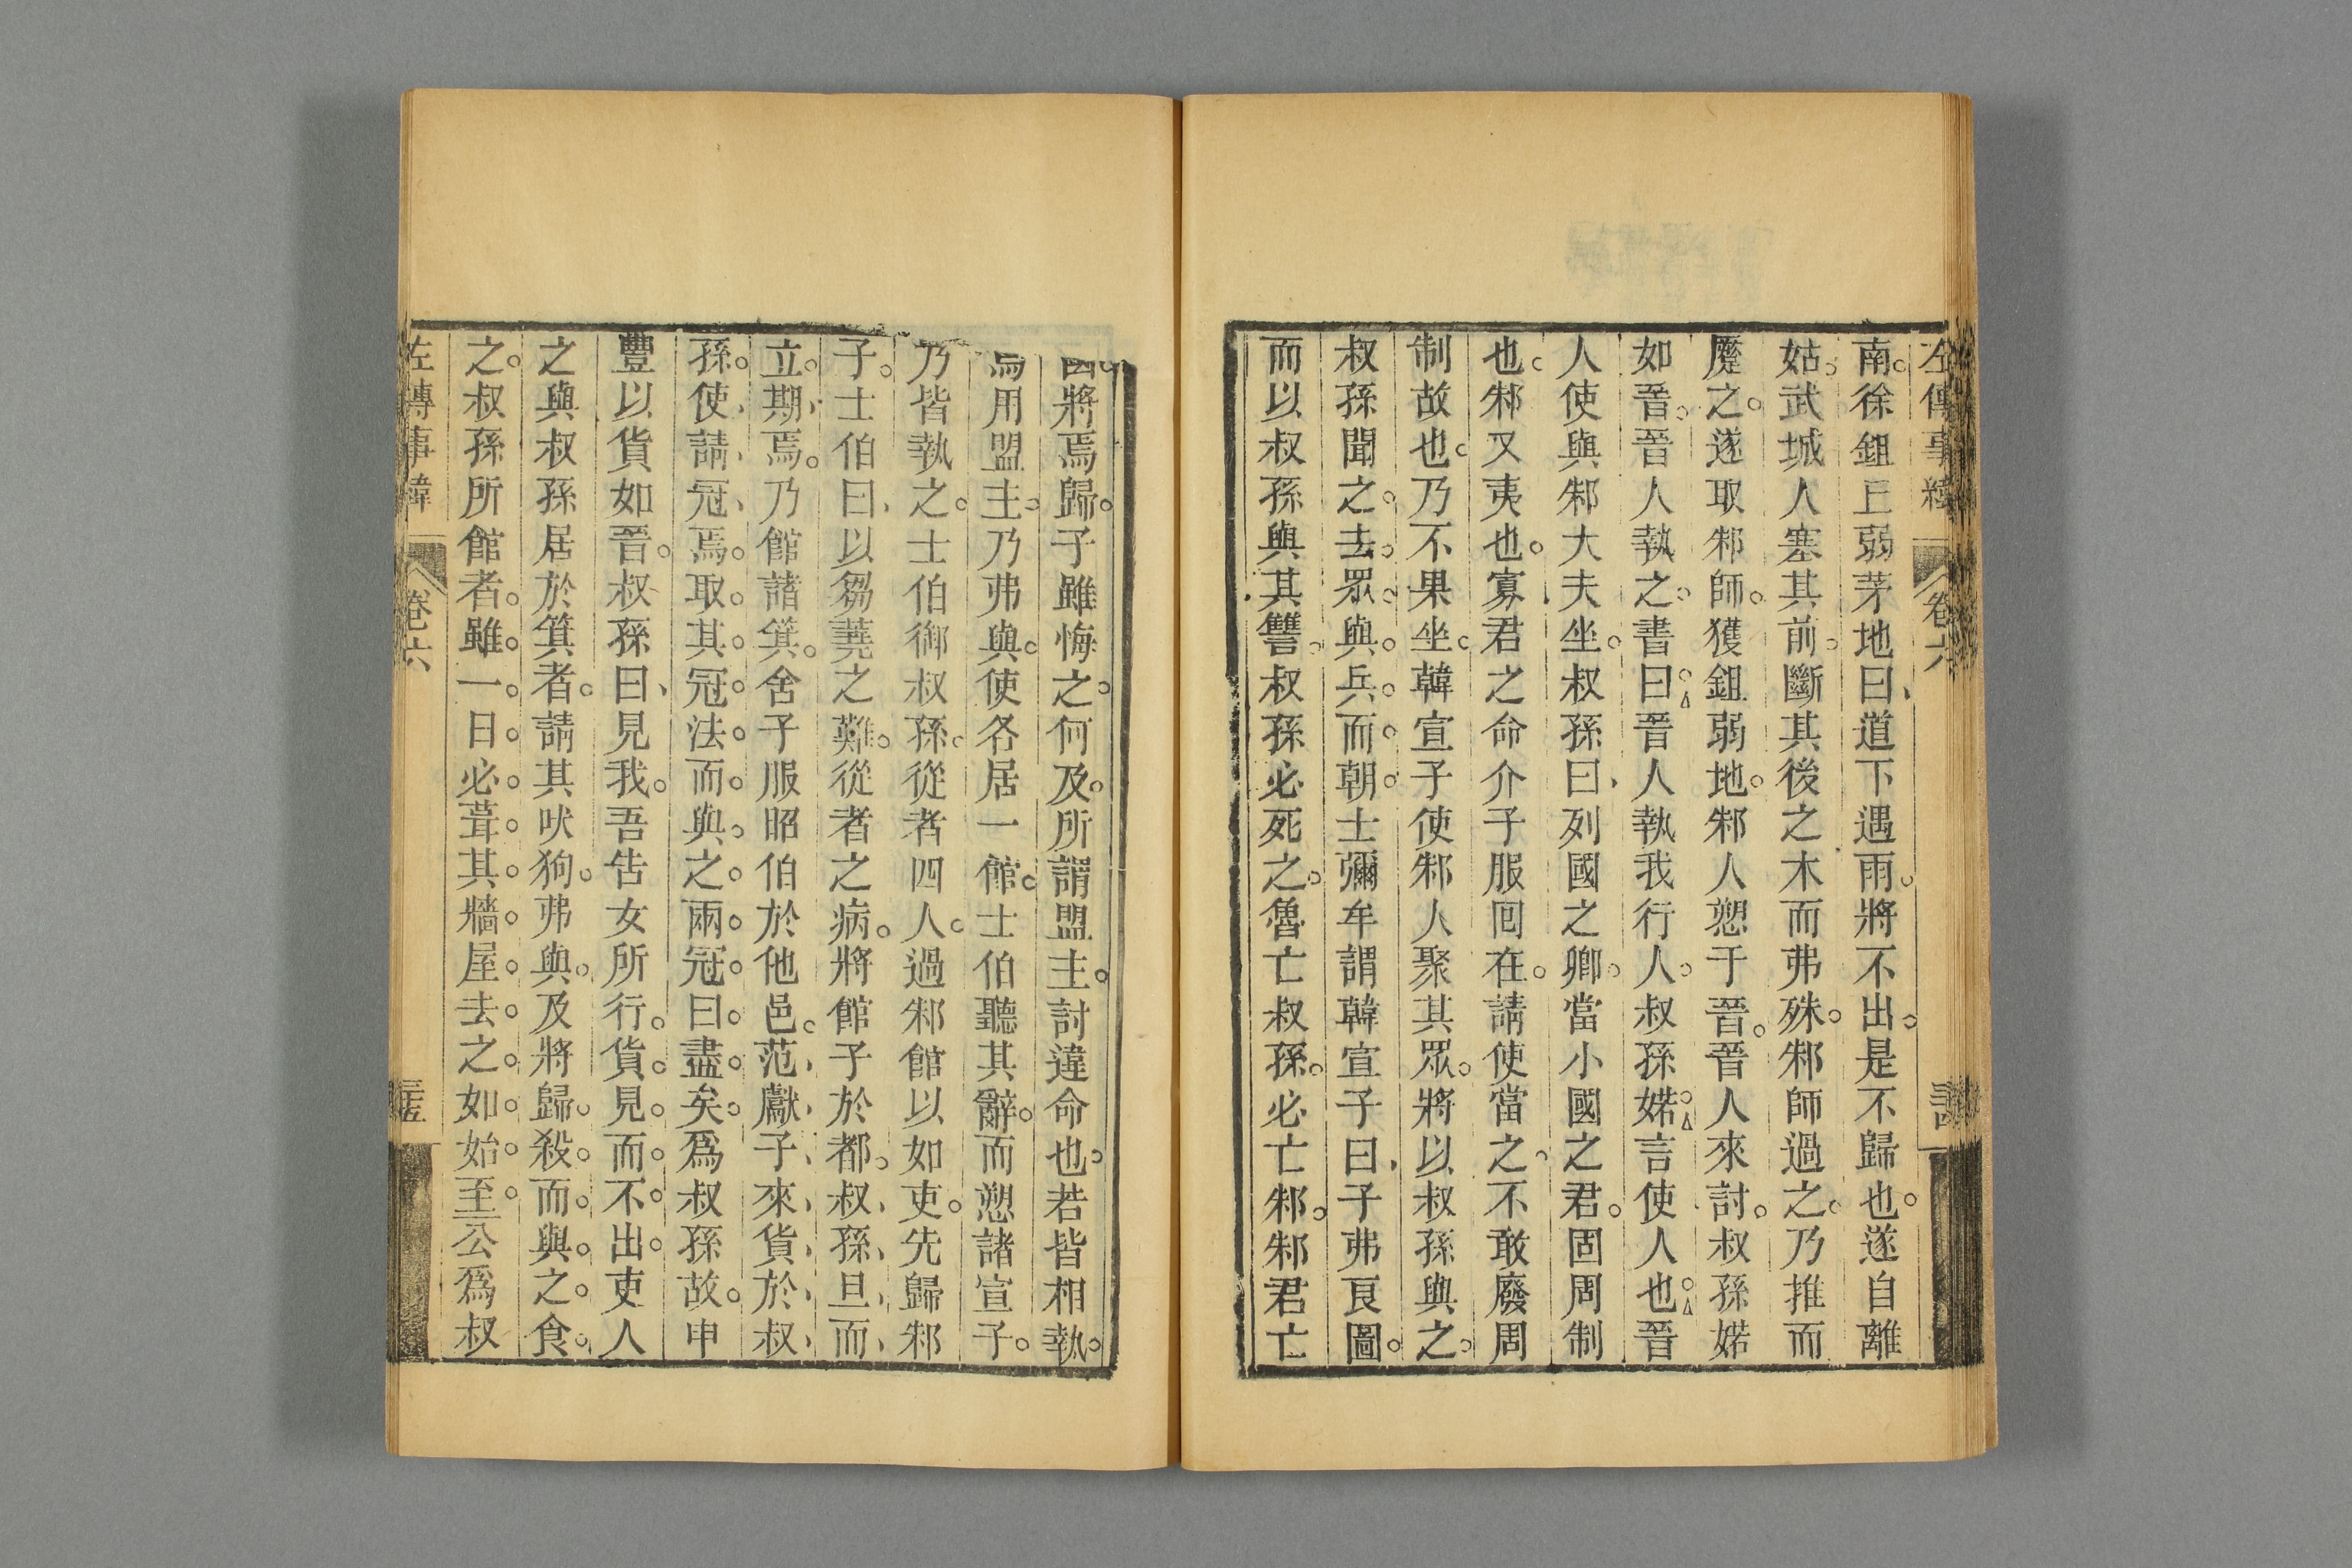 南徐鉏丘弱茅地曰道下遇雨將不出是不歸也遂自離
姑武城人塞其前斷其後之木而弗殊邾師過之乃推而
蹷之遂取邾師獲鉏弱地邾人愬于晉晉人來討叔孫婼
如晉晉人執之書曰晉人執我行人叔孫婼言使人也晉
人使與邾大夫坐叔孫曰列國之卿當小國之君固周制
也邾又夷也寡君之命介子服回在請使當之不敢廢周
制故也乃不果坐韓宣子使邾人聚其眾將以叔孫與之
叔孫聞之去眾與兵而朝士彌牟謂韓宣子曰子弗良圖
而以叔孫與其讐叔孫必死之魯亡叔孫必亡邾邾君亡
國將焉歸子雖悔之何及所謂盟主討違命也若皆相執
焉用盟主乃弗與使各居一館士伯聽其辭而愬諸宣子
乃皆執之士伯御叔孫從者四人過邾館以如吏先歸邾
子士伯曰以芻蕘之難從者之病將館子於都叔孫旦而
立期焉乃館諸箕舍子服昭伯於他邑范獻子來貨於叔
孫使請冠焉取其冠法而與之兩冠曰盡矣爲叔孫故申
豐以貨如晉叔孫曰見我吾告女所行貨見而不出吏人
之與叔孫居於箕者請其吠狗弗與及將歸殺而與之食
之叔孫所館者雖一日必葺其牆屋去之如始至公爲叔
左傳事緯 卷六